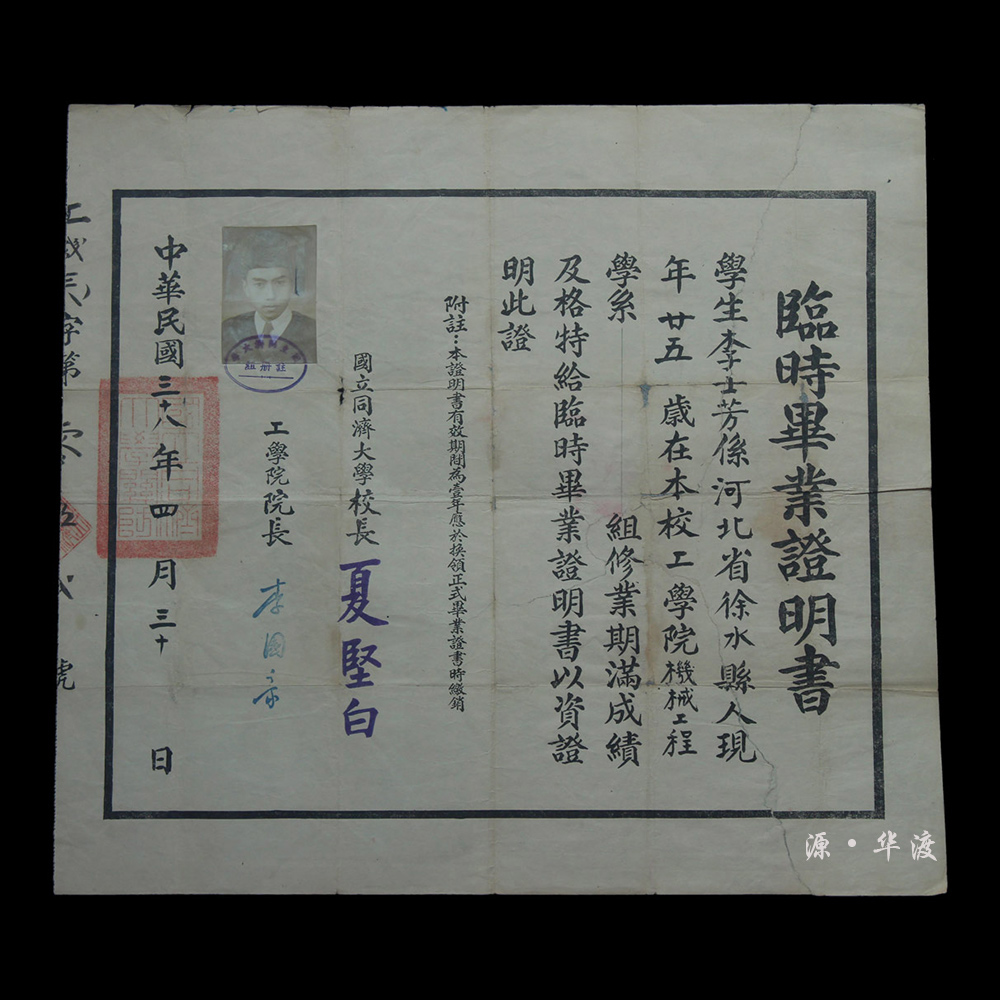 臨時畢業證明書
學生李士芳係河北省徐水縣人現
年廿五歲在本校工學院機械工程
學系 組修業期滿成績
及格特給臨時畢業證明書以資證
明此證
附註：本證明書有效期間為壹年應於換領正式畢業證書時繳銷
國立同濟大學校長 夏堅白
工學院院長 李國豪
註册組
中華民國三十八年四月三十日
字第 號
源·华渡